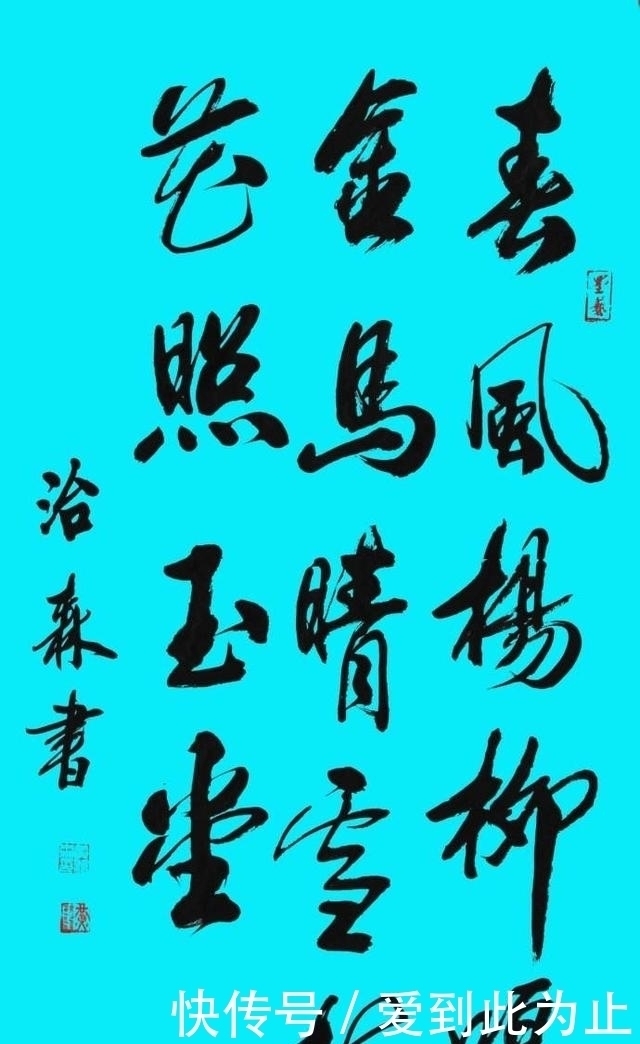 春風楊柳
金馬晴雪
花照玉堂
洽森書
快传号 / 爱到此为止